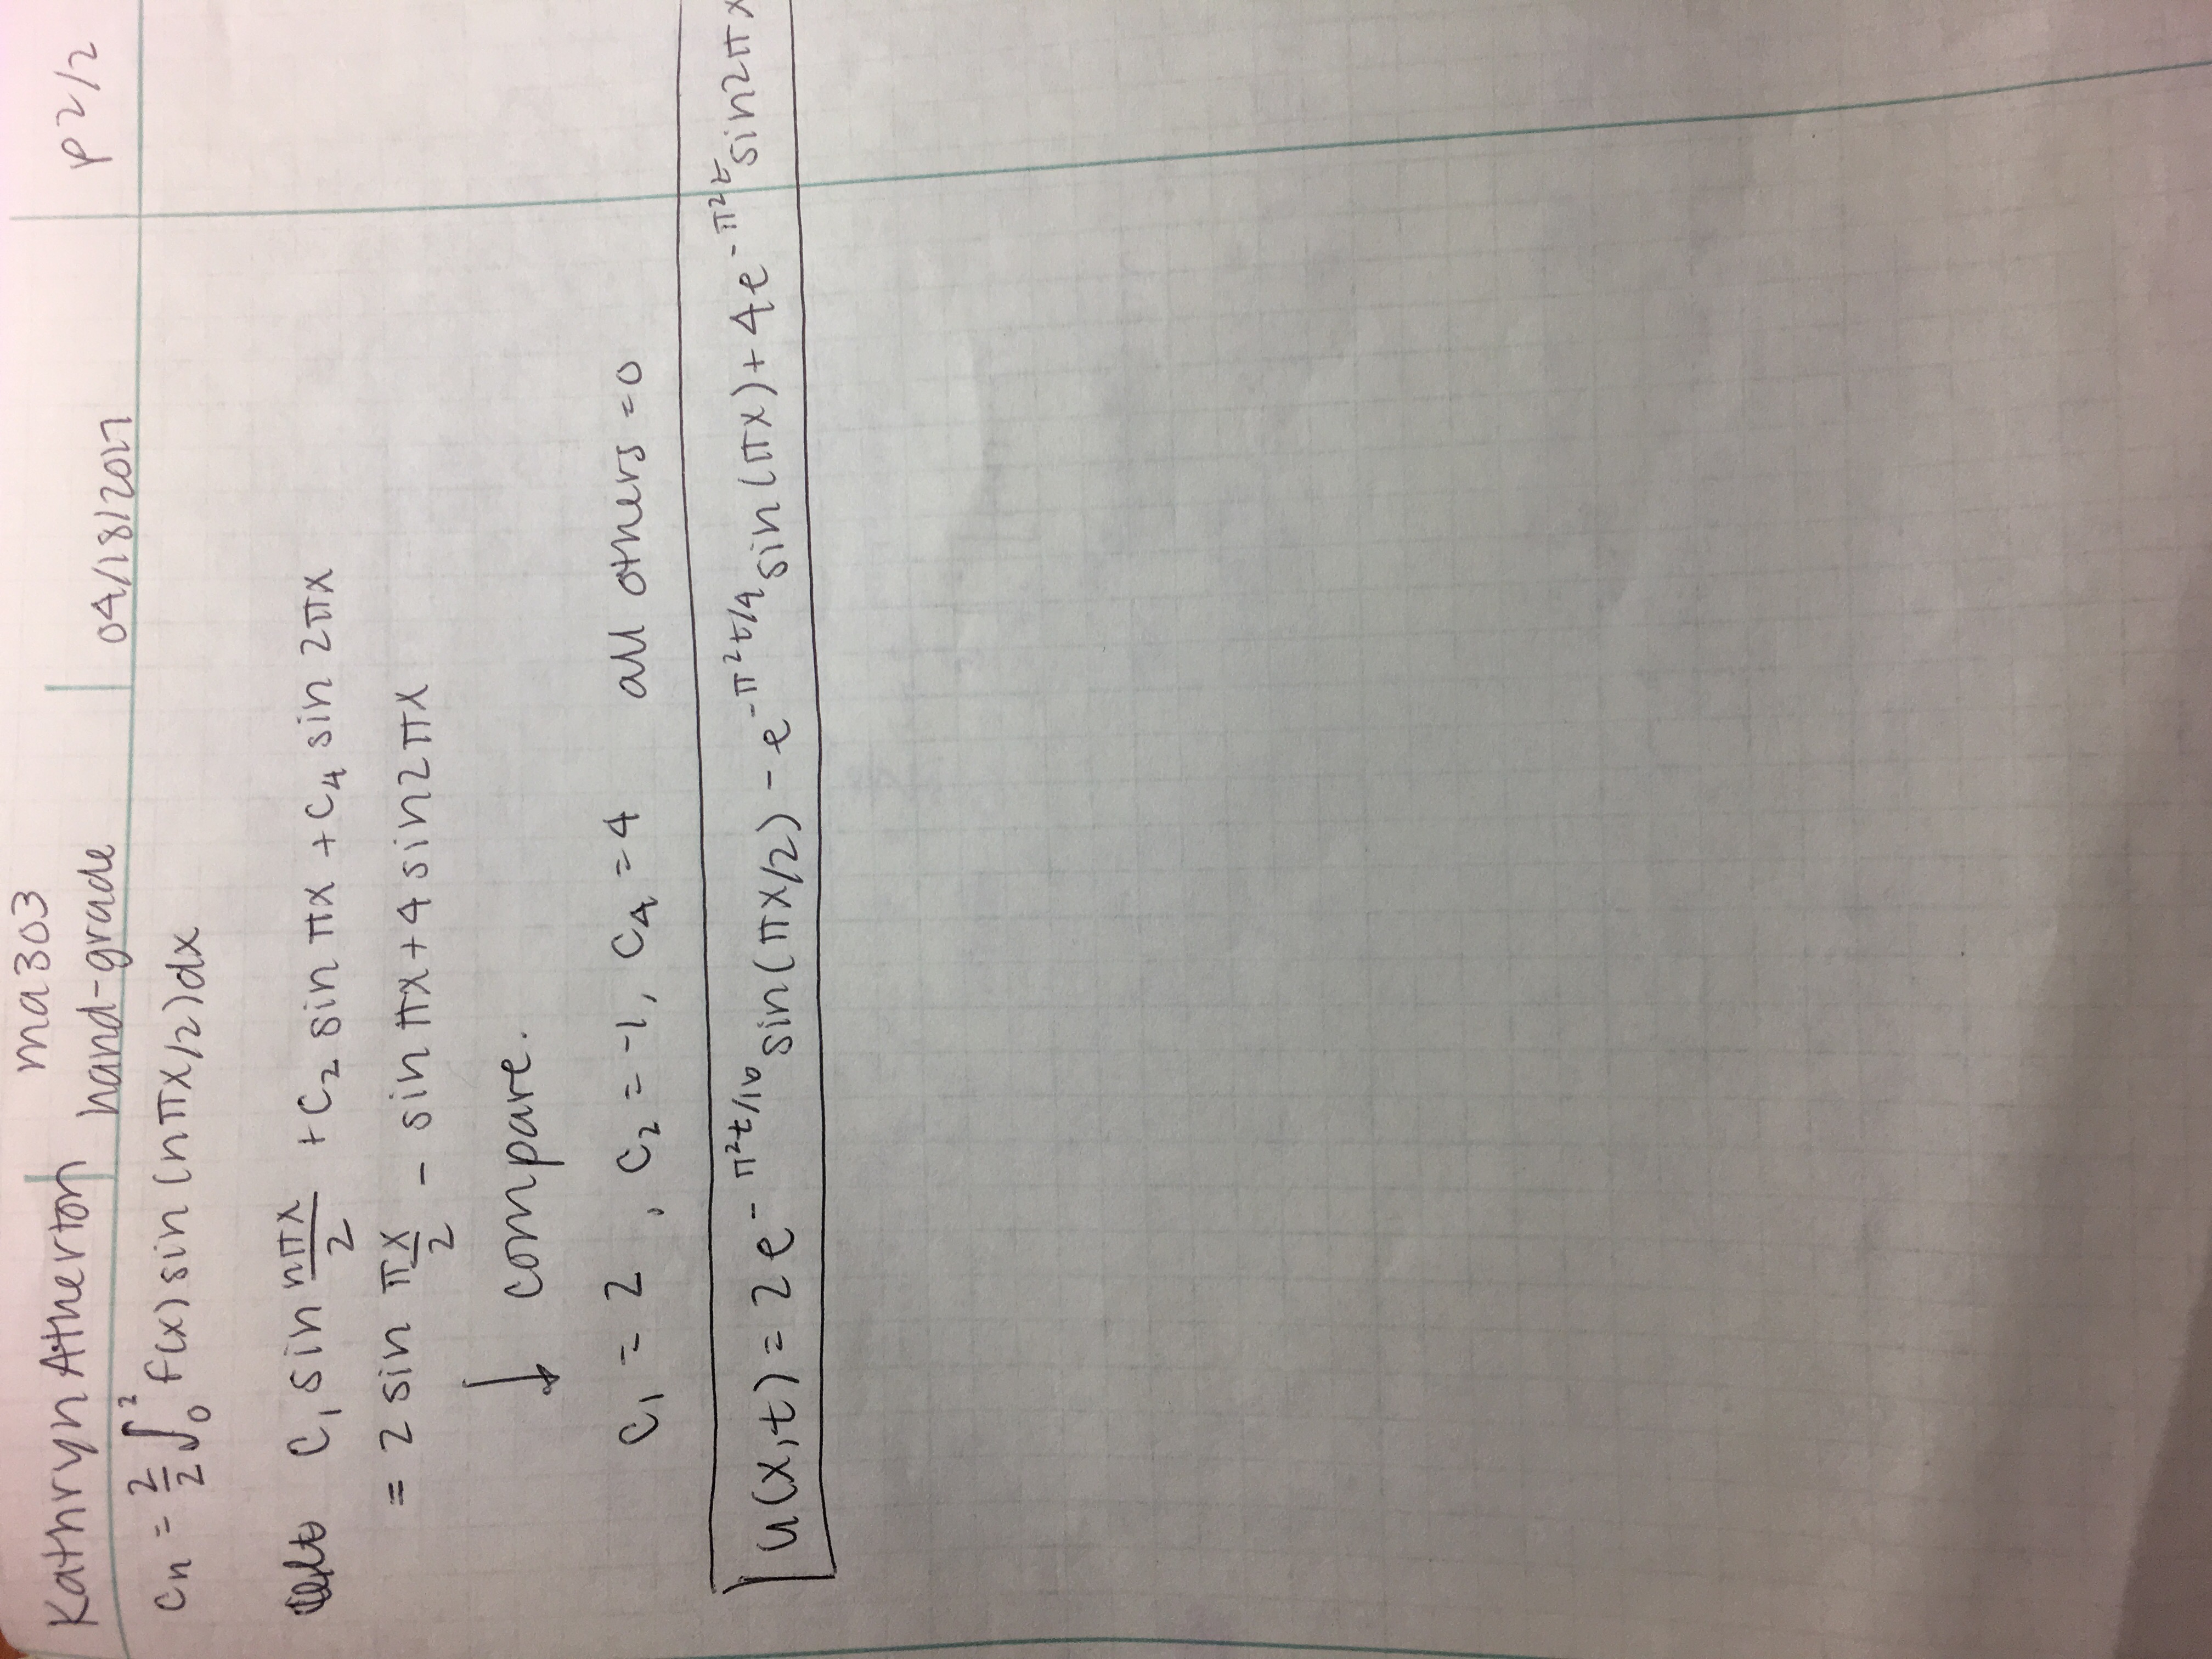 Kathryn Atherton
ma303
hand-grade
04/18/2017
p 2/2
cₙ = 2/2 ∫₀² f(x) sin (nπx/2)dx
c₁ sin nπx/2 + c₂ sin πx + c₄ sin 2πx
= 2 sin πx/2 - sin πx + 4 sin2πx
↓ compare.
c₁ = 2, c₂ = -1, c₄ = 4 all others = 0
u(x,t) = 2e^(-π²t/16) sin(πx/2) - e^(-π²t/4) sin(πx) + 4e^(-π²t) sin2πx